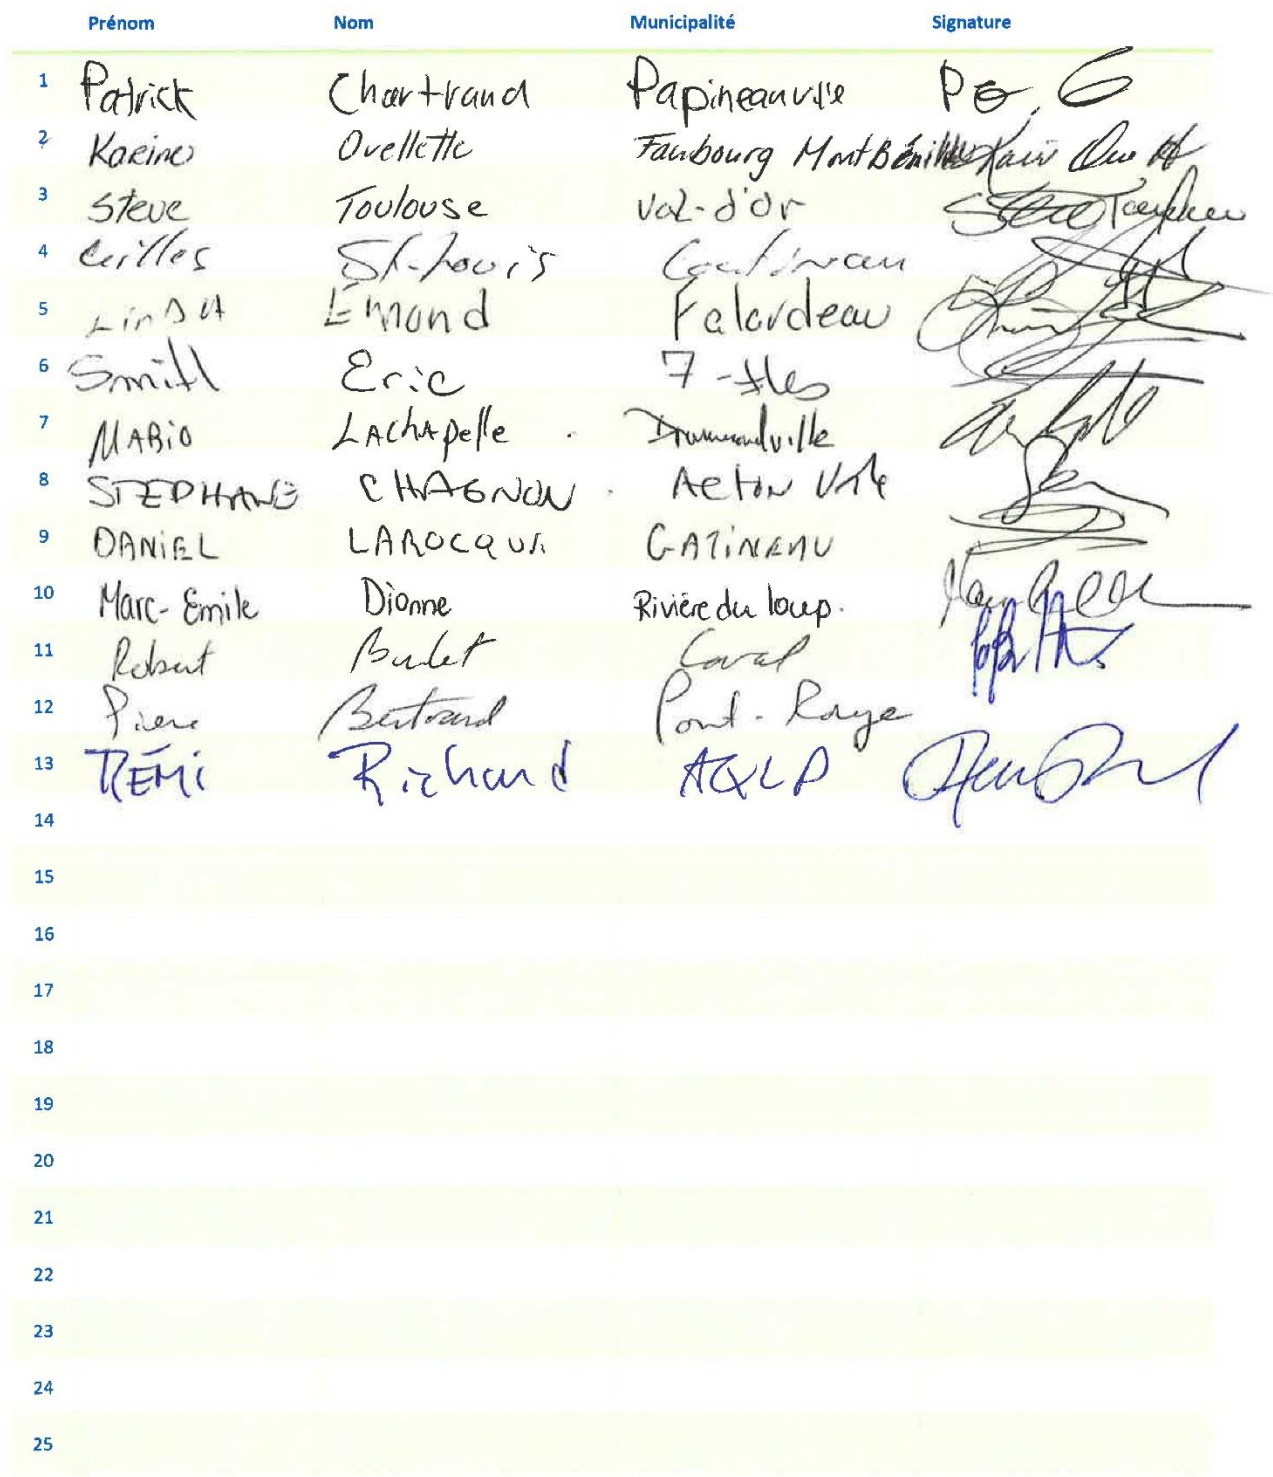 Prénom Nom Municipalité Signature
1 Patrick Chartrand Papineauville
2 Karine Ouellette Faubourg Mont Bénilde
3 Steve Toulouse Val-d'or
4 Gilles St-Louis Gatineau
5 Linda Emond Falardeau
6 Smith Eric 7-Iles
7 MARIO LAChApelle Drummondville
8 STEPHANE CHAGNON Acton Vale
9 DANIEL LAROCQUE GATINEAU
10 Marc-Emile Dionne Rivière du loup.
11 Robert Laval
12 Pierre Bertrand Pont-Rouge
13 RÉMI Richard AQLP
14
15
16
17
18
19
20
21
22
23
24
25